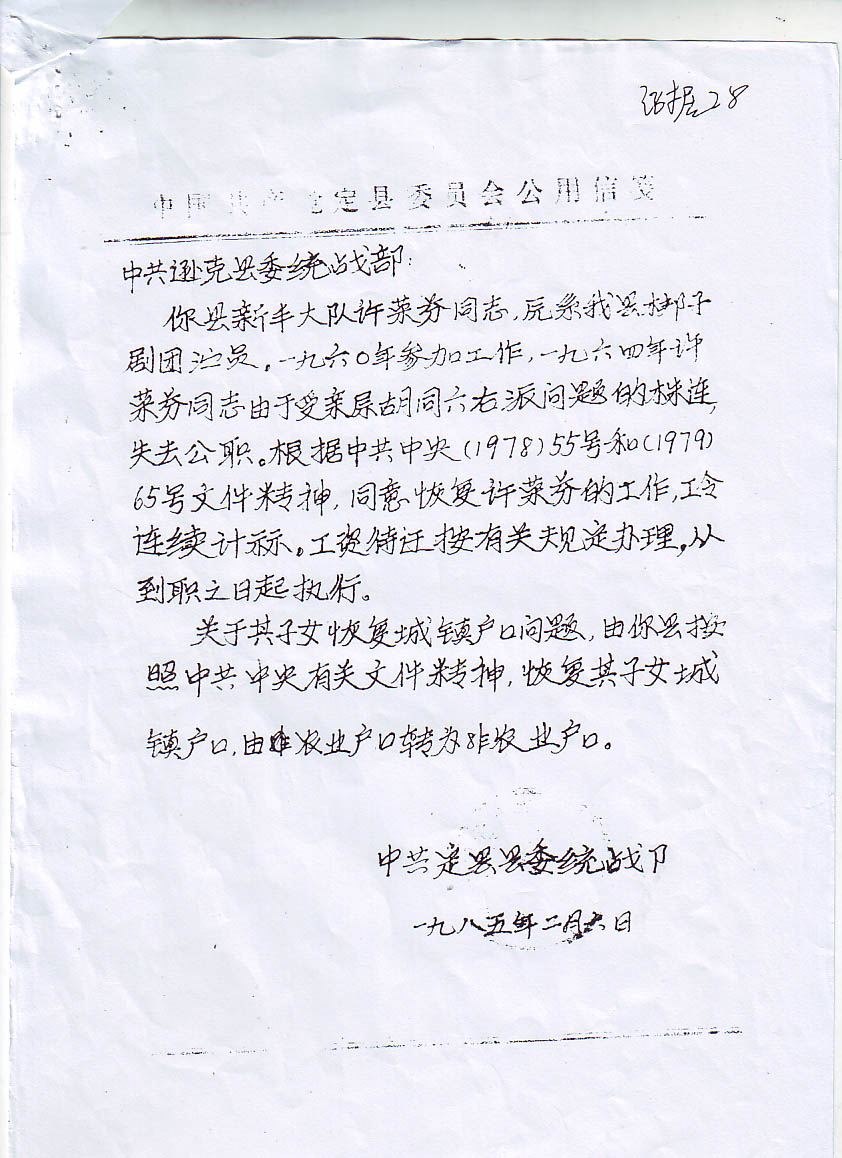 证据28
中国共产 定县委员会公用信笺
中共逊克县委统战部:
你县新丰大队许菜芬同志,原系我县梆子
剧团演员。一九六〇年参加工作,一九六四年许
菜芬同志由于受亲属胡同六右派问题的株连,
失去公职。根据中共中央(1978)55号和(1979)
65号文件精神,同意恢复许菜芬的工作,工令
连续计祘。工资待迂按有关规定办理。从
到职之日起执行。
关于其子女恢复城镇户口问题,由你县按
照中共中央有关文件精神,恢复其子女城
镇户口,由 农业户口转为非农业户口。
中共定县县委统战卩
一九八五年二月六日